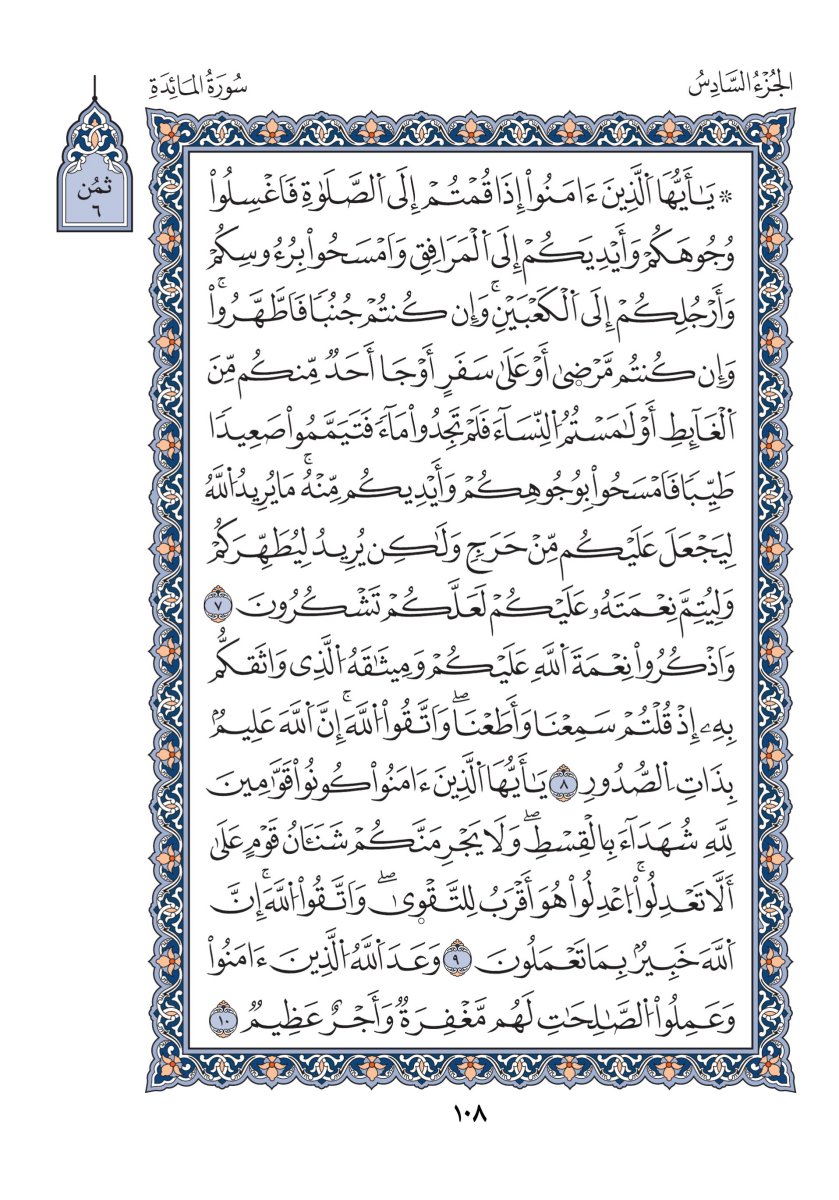 الجُزْءُ السَّادِسُ
سُورَةُ المَائِدَةِ
ثُمُن
٦
* يَٰأَيُّهَا اَلَّذِينَ ءَامَنُواْ إِذَا قُمْتُمْ إِلَى اَلصَّلَوٰةِ فَاغْسِلُواْ
وُجُوهَكُمْ وَأَيْدِيَكُمْ إِلَى اَلْمَرَافِقِ وَامْسَحُواْ بِرُءُوسِكُمْ
وَأَرْجُلِكُمْ إِلَى اَلْكَعْبَيْنِۚ وَإِن كُنتُمْ جُنُبًا فَاطَّهَّرُواْۚ
وَإِن كُنتُم مَّرْضىٰ أَوْ عَلَىٰ سَفَرٍ أَوْ جَا أَحَدٌ مِّنكُم مِّنَ
اَلْغَآئِطِ أَوْ لَٰمَسْتُمُ اُلنِّسَآءَ فَلَمْ تَجِدُواْ مَآءً فَتَيَمَّمُواْ صَعِيدًا
طَيِّبًا فَامْسَحُواْ بِوُجُوهِكُمْ وَأَيْدِيكُم مِّنْهُۚ مَا يُرِيدُ اُللَّهُ
لِيَجْعَلَ عَلَيْكُم مِّنْ حَرَجٍ وَلَٰكِن يُرِيدُ لِيُطَهِّرَكُمْ
وَلِيُتِمَّ نِعْمَتَهُۥ عَلَيْكُمْ لَعَلَّكُمْ تَشْكُرُونَ ٧
وَاذْكُرُواْ نِعْمَةَ اَللَّهِ عَلَيْكُمْ وَمِيثَٰقَهُ اُلَّذِى وَاثَقكُّم
بِهِۦ إِذْ قُلْتُمْ سَمِعْنَا وَأَطَعْنَاۖ وَاتَّقُواْ اُللَّهَۚ إِنَّ اَللَّهَ عَلِيمٌ
بِذَاتِ اِلصُّدُورِ ٨ يَٰأَيُّهَا اَلَّذِينَ ءَامَنُواْ كُونُواْ قَوَّٰمِينَ
لِلَّهِ شُهَدَآءَ بِالْقِسْطِۖ وَلَا يَجْرِمَنَّكُمْ شَنَـَٔانُ قَوْمٍ عَلَىٰ
أَلَّا تَعْدِلُواْۚ اُعْدِلُواْ هُوَ أَقْرَبُ لِلتَّقْوىٰۖ وَاتَّقُواْ اُللَّهَۚ إِنَّ
اَللَّهَ خَبِيرٌ بِمَا تَعْمَلُونَ ٩ وَعَدَ اَللَّهُ اُلَّذِينَ ءَامَنُواْ
وَعَمِلُواْ اُلصَّٰلِحَٰتِ لَهُم مَّغْفِرَةٌ وَأَجْرٌ عَظِيمٌ ١٠
١٠٨